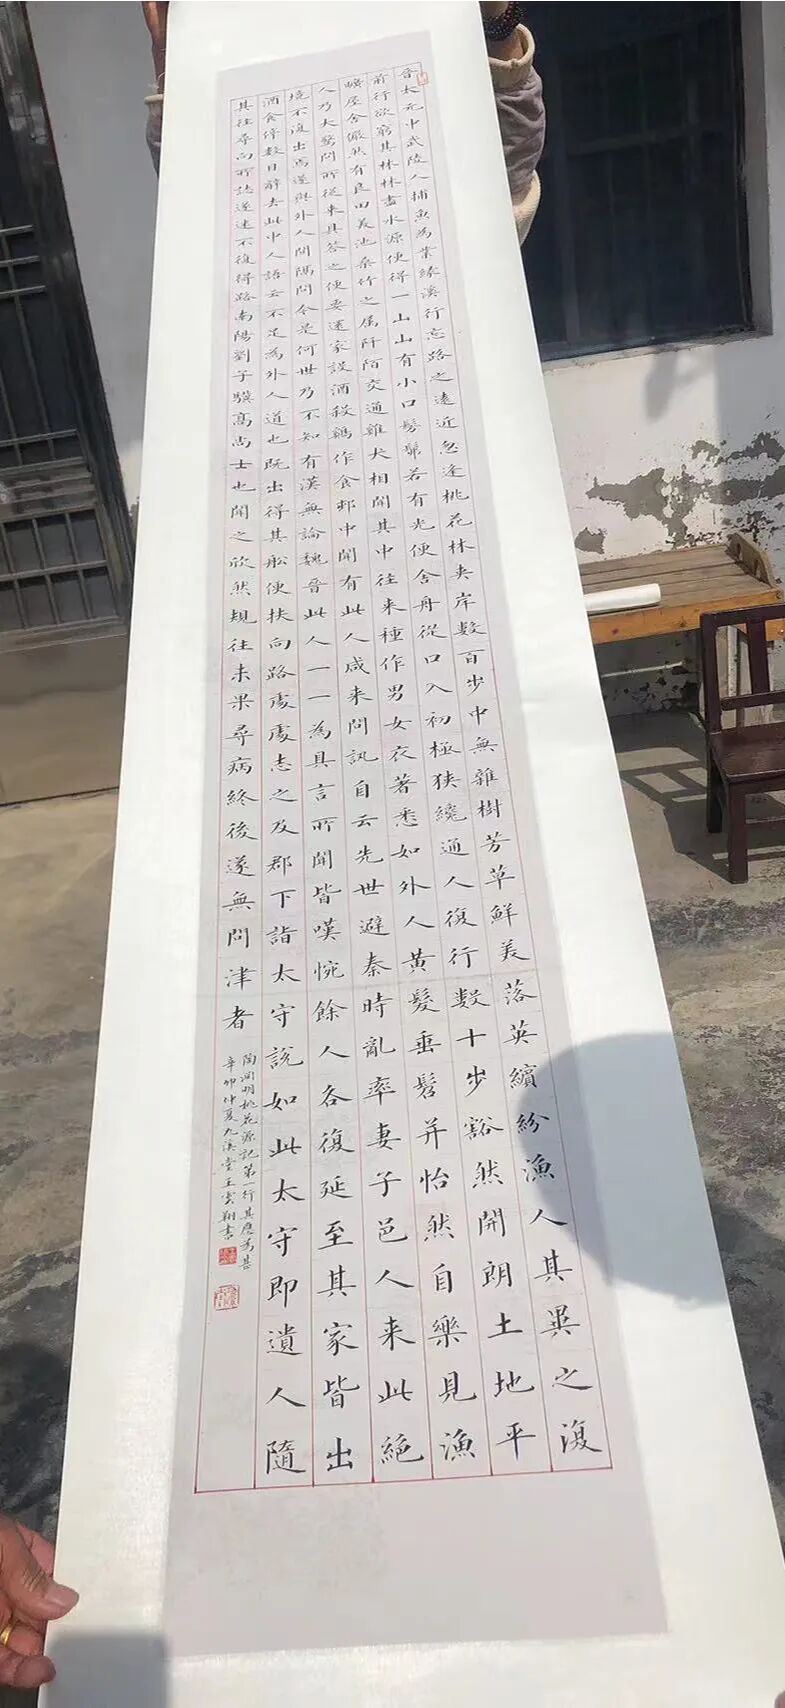 晉太元中武陵人捕魚為業緣溪行忘路之遠近忽逢桃花林夾岸數百步中無雜樹芳草鮮美落英繽紛漁人其異之復
前行欲窮其林林盡水源便得一山山有小口髣髴若有光便舍舟從口入初極狹纔通人復行數十步豁然開朗土地平
曠屋舍儼然有良田美池桑竹之属阡陌交通雞犬相聞其中往来種作男女衣著悉如外人黃髮垂髫并怡然自樂見漁
人乃大驚問所從来具答之便要還家設酒殺鷄作食邨中聞有此人咸来問訊自云先世避秦時亂率妻子邑人来此絕
境不復出焉遂與外人間隔問今是何世乃不知有漢無論魏晉此人一一為具言所聞皆嘆惋餘人各復延至其家皆出
酒食停數日辭去此中人語云不足為外人道也既出得其船便扶向路處處志之及郡下詣太守說如此太守即遣人隨
其往尋向所誌遂迷不復得路南陽劉子驥髙尚士也聞之欣然規往未果尋病終後遂無問津者
陶淵明桃花源記第一行其應為甚
辛卯仲夏九溪堂王雲翔書